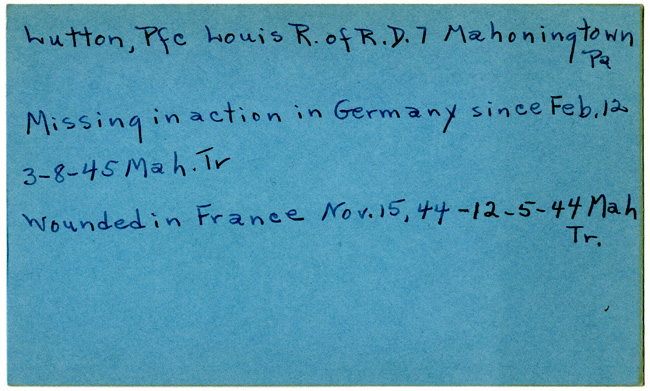 Lutton, Pfc Louis R. of R.D. 7 Mahoningtown
Pa
Missing in action in Germany since Feb. 12
3-8-45 Mah. Tr
Wounded in France Nov. 15, 44 - 12-5-44 Mah
Tr.